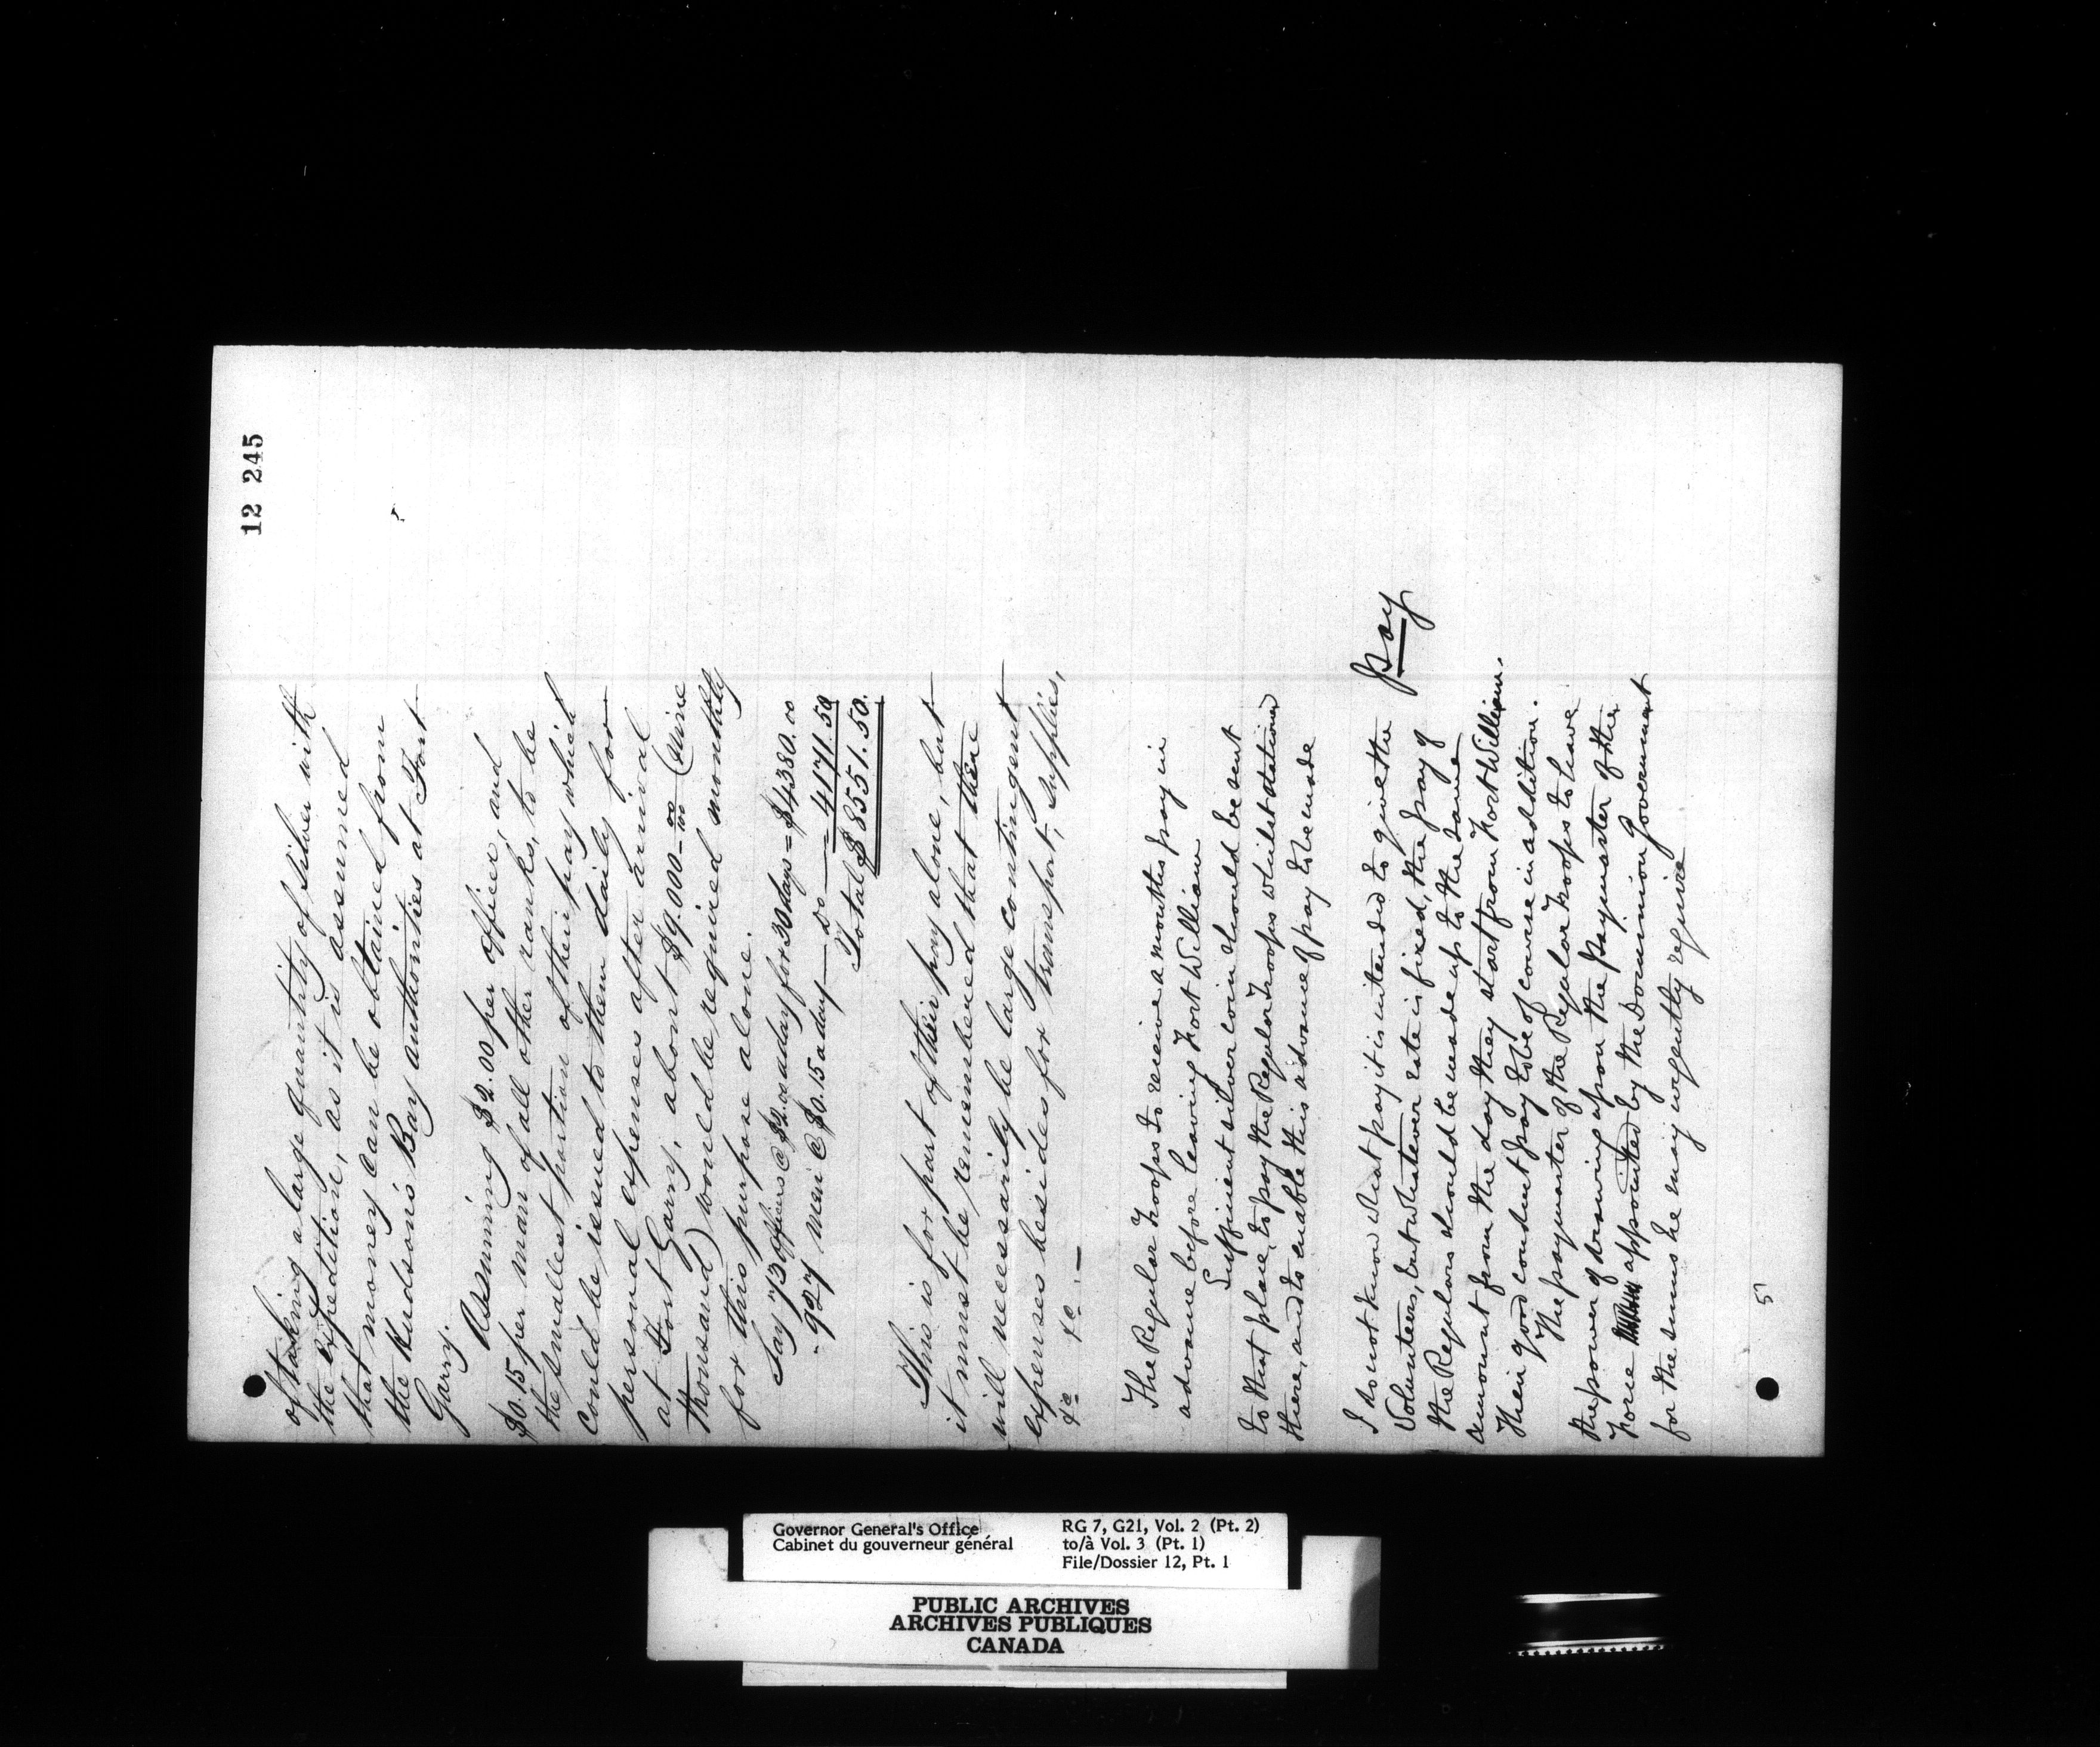 12 245
of taking a large quantity of silver with
the expedition, as it is assumed
that money can be obtained from
the Hudson's Bay authorities at Fort
Garry.
Assuming $2.00 per officer, and
$0.15 per man of all other ranks, to be
the smallest portion of their pay which
could be issued to them daily for
personal expenses after arrival
at Fort Garry, about $9.000 - 00/100 (Nine
thousand) would be required monthly
for this purpose alone.
Say 73 officers @ $2.00 a day for 30 days = $4380.00
" 927 men @ $0.15 a day — do — = 4171.50
Total $8551.50.
This is for part of their pay alone, but
it must be remembered that there
will necessarily be large contingent
expenses besides for transport, supplies,
&c &c. —
The Regular Troops to receive a months pay in
advance before leaving Fort William
Sufficient silver coin should be sent
to that place, to pay the Regular Troops whilst stationed
there, and to enable this advance of pay to be made
Pay
I do not know what pay it is intended to give the
Volunteers, but whatever rate is fixed, the pay of
the Regulars should be made up to the same
amount from the day they start from Fort William.
Their good conduct pay to be of course in addition.
The paymaster of the Regular Troops to have
the power of drawing upon the Paymaster of the
Force appointed by the Dominion Government
for the sums he may urgently require
5
Governor General's Office
Cabinet du gouverneur général
RG 7, G21, Vol. 2 (Pt. 2)
to/à Vol. 3 (Pt. 1)
File/Dossier 12, Pt. 1
PUBLIC ARCHIVES
ARCHIVES PUBLIQUES
CANADA